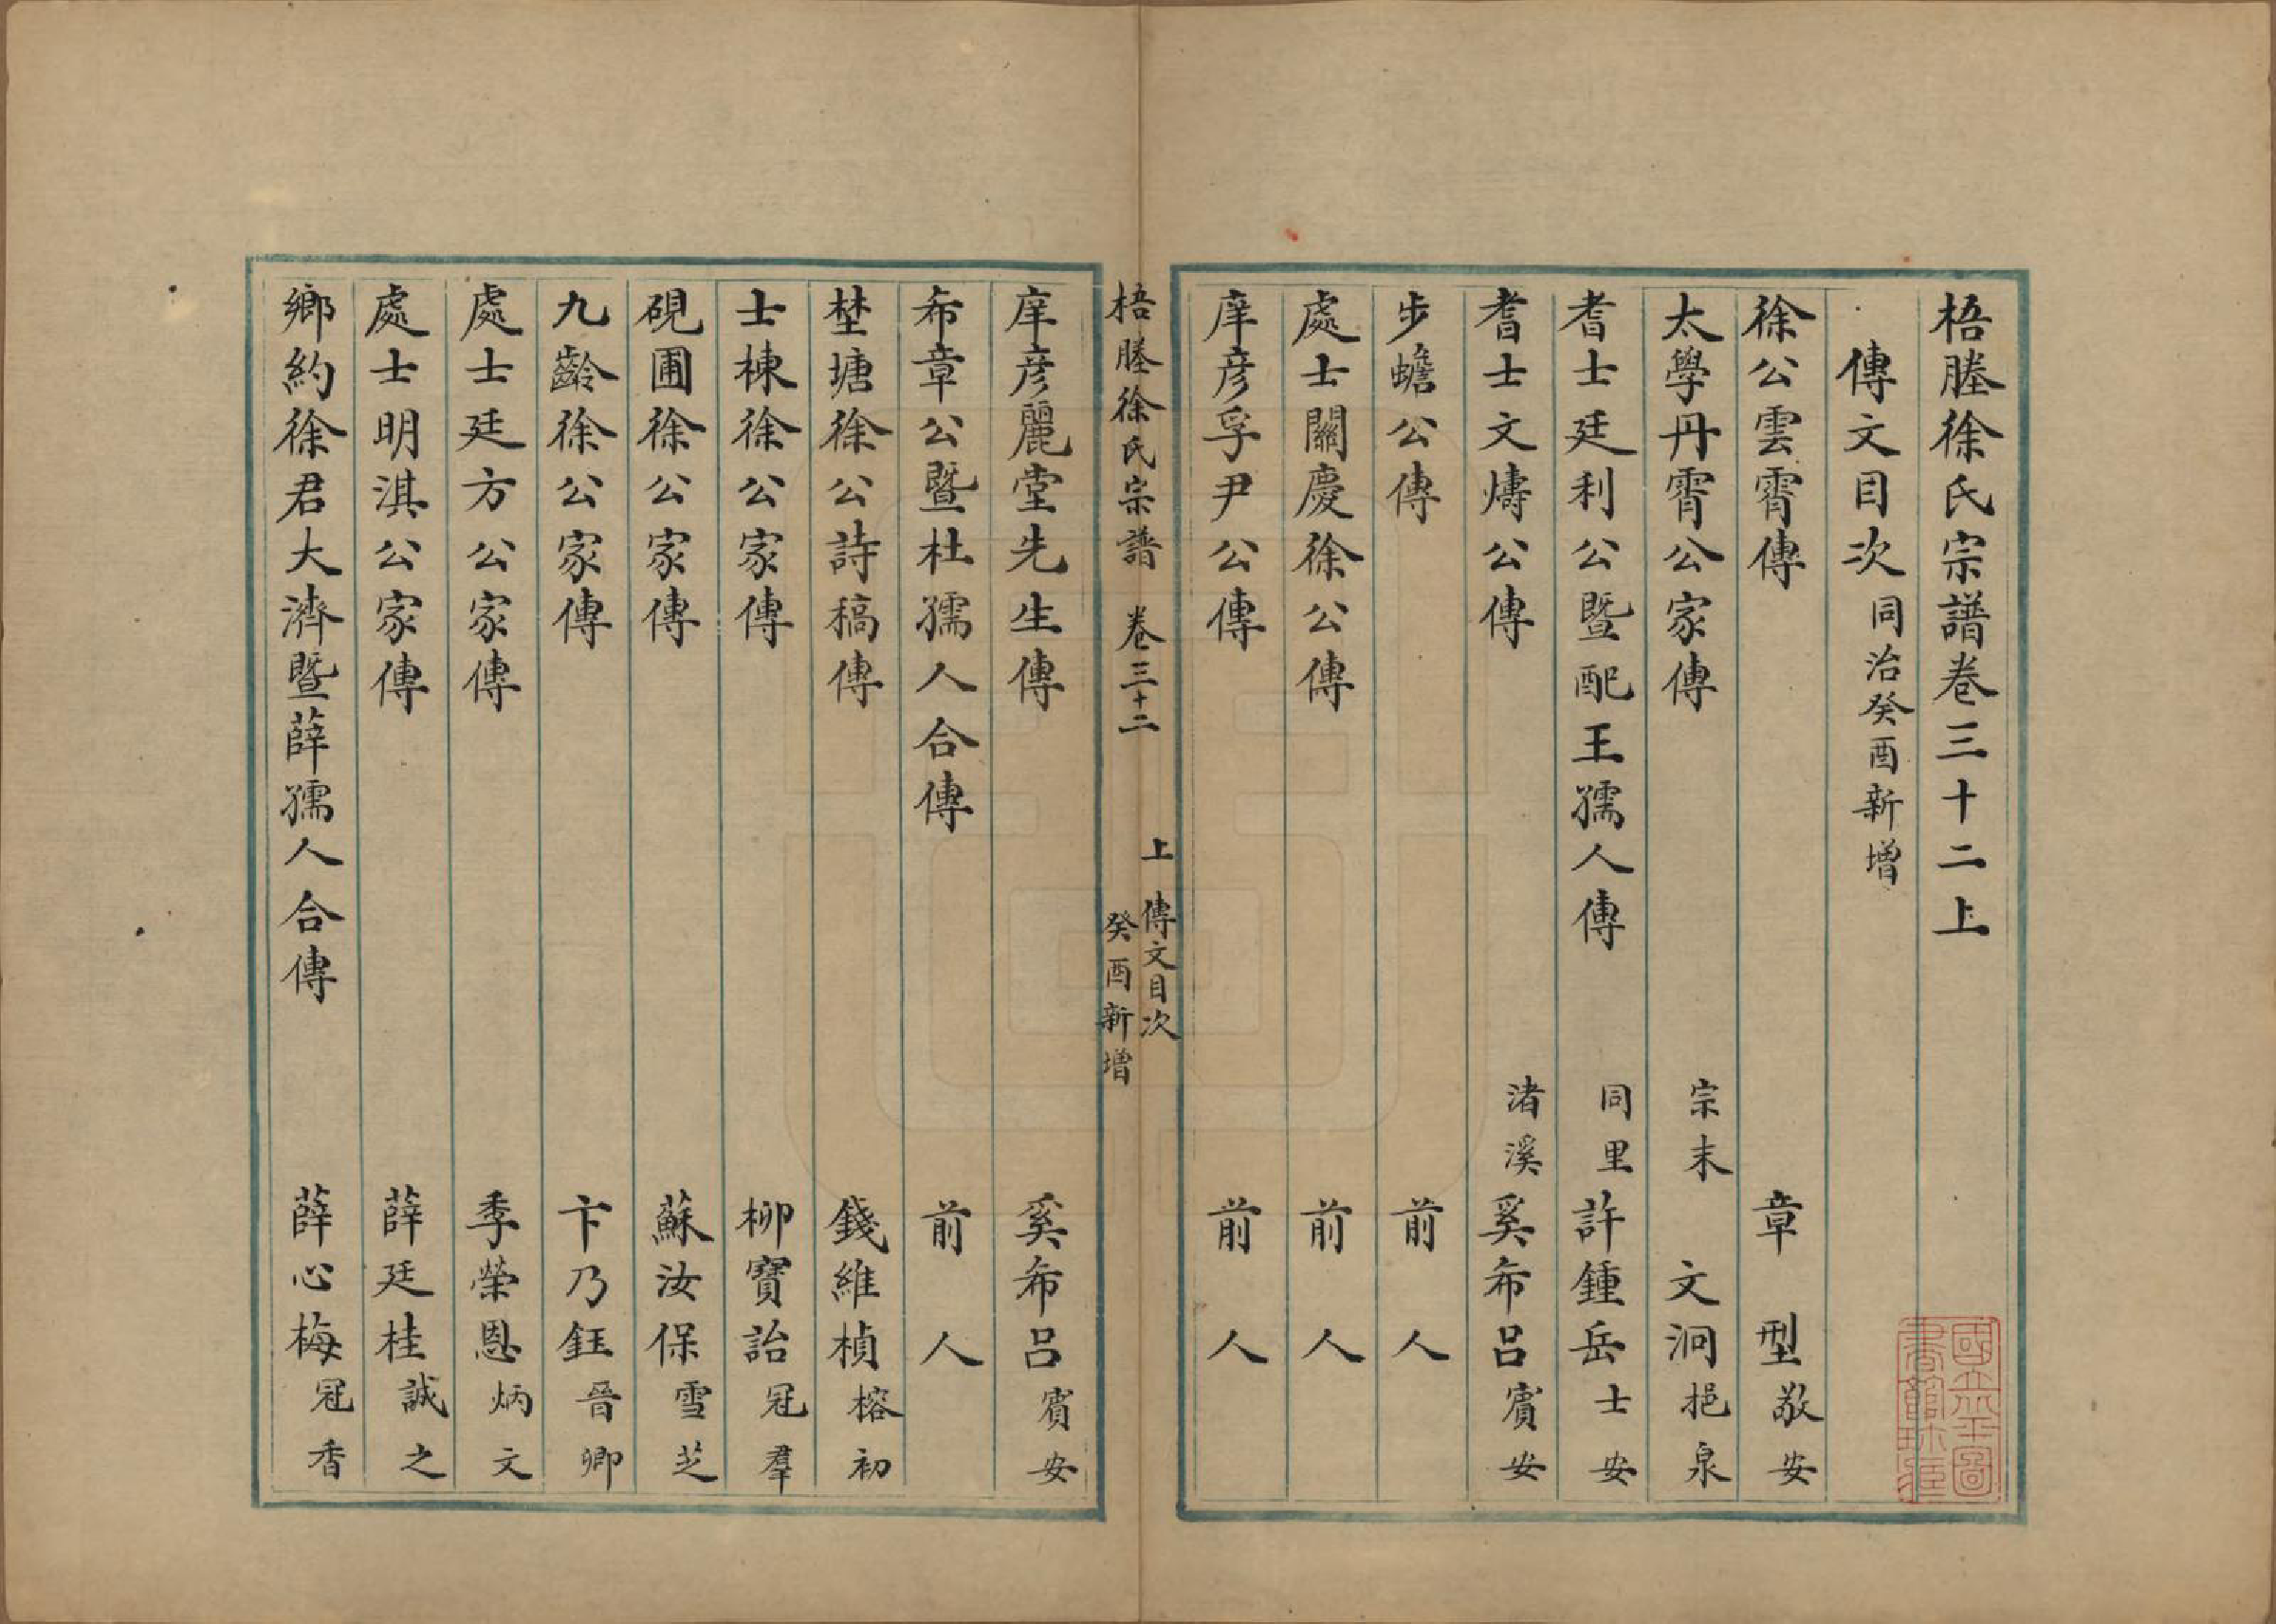 梧塍徐氏宗譜卷三十二上
傳文目次 同治癸酉新增
徐公雲霄傳 章型 敬安
太學丹霄公家傳 宗末 文洞 挹泉
耆士廷利公暨配王孺人傳 同里 許鍾岳 士安
耆士文燽公傳 渚溪 奚希呂 賓安
步蟾公傳 前人
處士關慶徐公傳 前人
庠彥孚尹公傳 前人
梧塍徐氏宗譜 卷三十二 上 傳文目次 癸酉新增
庠彥麗堂先生傳 奚希呂 賓安
希章公暨杜孺人合傳 前人
埜塘徐公詩稿傳 錢維楨 榕初
士棟徐公家傳 柳寶詒 冠羣
硯圃徐公家傳 蘇汝保 雪芝
九齡徐公家傳 卞乃鈺 晉卿
處士廷方公家傳 季榮恩 炳文
處士明淇公家傳 薛廷桂 誠之
鄉約徐君大濟暨薛孺人合傳 薛心梅 冠香
國立北平圖書館珍藏